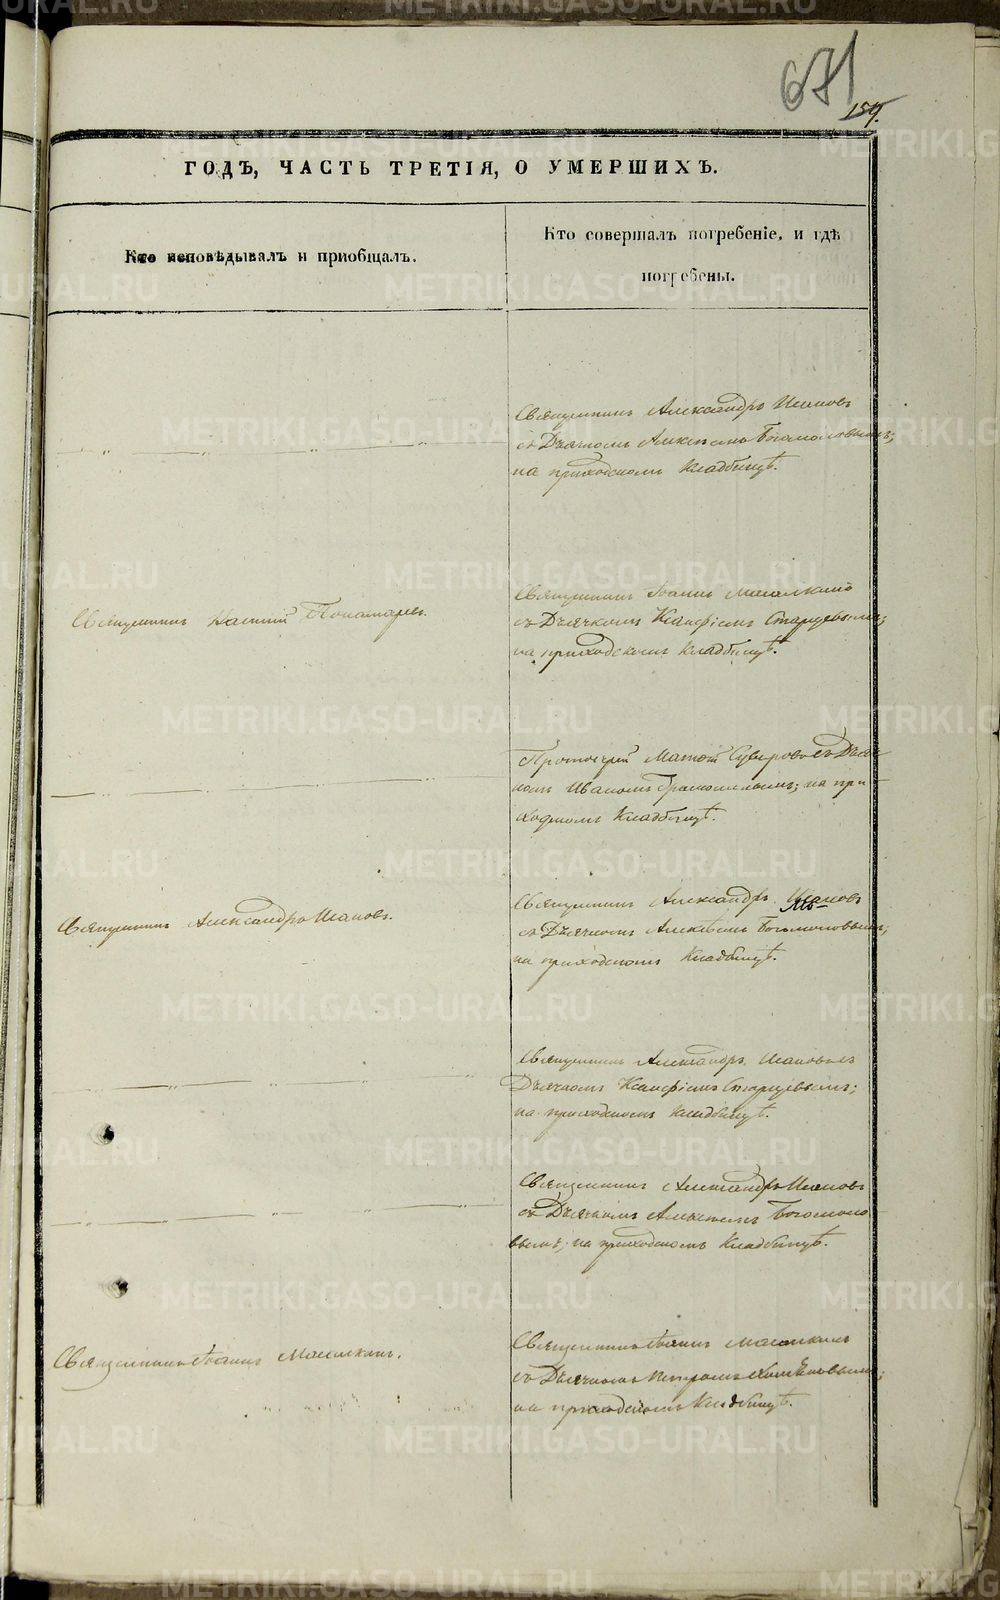 671
159.
ГОДЪ, ЧАСТЬ ТРЕТІЯ, О УМЕРШИХЪ.
Кто исповѣдывалъ и пріобщалъ.
Кто совершалъ погребеніе, и гдѣ
погребены.
Священникъ Александръ Исаковъ
съ Дьячкомъ Алексѣемъ Богомоловымъ;
на приходскомъ Кладбищѣ.
Священникъ Пономаревъ.
Священникъ Іоаннъ
съ Дьячкомъ Ксанфіемъ Старцевымъ;
на приходскомъ Кладбищѣ.
Протоіерей Матѳій съ Дьяч-
комъ Иваномъ на при-
ходскомъ Кладбищѣ.
Священникъ Александръ Исаковъ.
Священникъ Александръ Исаковъ
съ Дьячкомъ Алексѣемъ Богомоловымъ;
на приходскомъ Кладбищѣ.
Священникъ Александръ Исаковъ съ
Дьячкомъ Ксанфіемъ Старцевымъ;
на приходскомъ Кладбищѣ.
Священникъ Александръ Исаковъ
съ Дьячкомъ Алексѣемъ Богомоло-
вымъ; на приходскомъ Кладбищѣ.
Священникъ Іоаннъ
Священникъ Іоаннъ
съ Дьячкомъ Петромъ
на приходскомъ Кладбищѣ.
METRIKI.GASO-URAL.RU